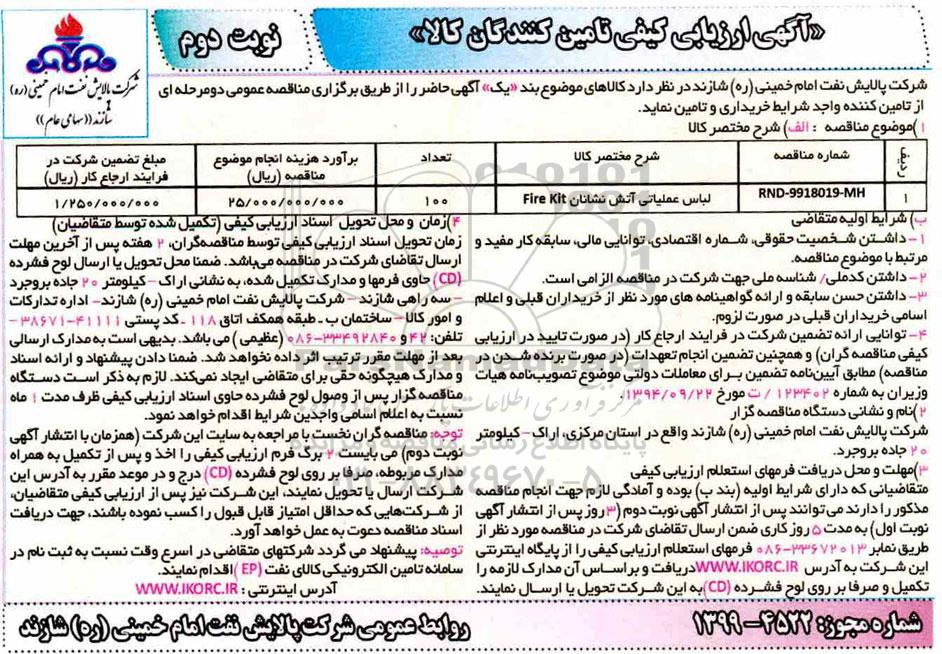 «آگهی ارزیابی کیفی تامین کنندگان کالا»
نوبت دوم
شرکت پالایش نفت امام خمینی (ره)
شازند «(سهامی عام)»
شرکت پالایش نفت امام خمینی (ره) شازند در نظر دارد کالاهای موضوع بند «یک» آگهی حاضر را از طریق برگزاری مناقصه عمومی دو مرحله ای
از تامین کننده واجد شرایط خریداری و تامین نماید.
۱)موضوع مناقصه : الف) شرح مختصر کالا
ردیف
شماره مناقصه
شرح مختصر کالا
تعداد
برآورد هزینه انجام موضوع
مناقصه (ریال)
مبلغ تضمین شرکت در
فرایند ارجاع کار (ریال)
۱
RND-9918019-MH
لباس عملیاتی آتش نشانان Fire Kit
۱۰۰
۲۵/۰۰۰/۰۰۰/۰۰۰
۱/۲۵۰/۰۰۰/۰۰۰
ب) شرایط اولیه متقاضی
۱- داشتن شخصیت حقوقی، شماره اقتصادی، توانایی مالی، سابقه کار مفید و
مرتبط با موضوع مناقصه.
۲- داشتن کدملی/ شناسه ملی جهت شرکت در مناقصه الزامی است.
۳- داشتن حسن سابقه و ارائه گواهینامه های مورد نظر از خریداران قبلی و اعلام
اسامی خریداران قبلی در صورت لزوم.
۴- توانایی ارائه تضمین شرکت در فرایند ارجاع کار (در صورت تایید در ارزیابی
کیفی مناقصه گران) و همچنین تضمین انجام تعهدات (در صورت برنده شدن در
مناقصه) مطابق آیین‌نامه تضمین برای معاملات دولتی موضوع تصویب‌نامه هیات
وزیران به شماره ۱۲۳۴۰۲ / ت مورخ ۱۳۹۴/۰۹/۲۲.
۲)نام و نشانی دستگاه مناقصه گزار
شرکت پالایش نفت امام خمینی (ره) شازند واقع در استان مرکزی، اراک- کیلومتر
۲۰ جاده بروجرد.
۳)مهلت و محل دریافت فرمهای استعلام ارزیابی کیفی
متقاضیانی که دارای شرایط اولیه (بند ب) بوده و آمادگی لازم جهت انجام مناقصه
مذکور را دارند می‌توانند پس از انتشار آگهی نوبت دوم (۳ روز پس از انتشار آگهی
نوبت اول) به مدت ۵ روز کاری ضمن ارسال تقاضای شرکت در مناقصه مورد نظر از
طریق نمابر ۳۳۶۷۲۰۱۳-۰۸۶ فرمهای استعلام ارزیابی کیفی را از پایگاه اینترنتی
این شرکت به آدرس WWW.IKORC.IR دریافت و براساس آن مدارک لازمه را
تکمیل و صرفا بر روی لوح فشرده (CD) به این شرکت تحویل یا ارسال نمایند.
۴)زمان و محل تحویل اسناد ارزیابی کیفی (تکمیل شده توسط متقاضیان)
زمان تحویل اسناد ارزیابی کیفی توسط مناقصه‌گران، ۲ هفته پس از آخرین مهلت
ارسال تقاضای شرکت در مناقصه می‌باشد. ضمنا محل تحویل یا ارسال لوح فشرده
(CD) حاوی فرمها و مدارک تکمیل شده، به نشانی اراک- کیلومتر ۲۰ جاده بروجرد
– سه راهی شازند – شرکت پالایش نفت امام خمینی (ره) شازند- اداره تدارکات
و امور کالا – ساختمان ب - طبقه همکف اتاق ۱۱۸ - کد پستی ۴۱۱۱۱-۳۸۶۷۱ –
تلفن: ۴۲ و ۳۳۴۹۲۸۴۰-۰۸۶ (عظیمی) می باشد. بدیهی است به مدارک ارسالی
بعد از مهلت مقرر ترتیب اثر داده نخواهد شد. ضمنا دادن پیشنهاد و ارائه اسناد
و مدارک هیچگونه حقی برای متقاضی ایجاد نمی‌کند. لازم به ذکر است دستگاه
مناقصه گزار پس از وصول لوح فشرده حاوی اسناد ارزیابی کیفی ظرف مدت ۱ ماه
نسبت به اعلام اسامی واجدین شرایط اقدام خواهد نمود.
توجه: مناقصه‌گران نخست با مراجعه به سایت این شرکت (همزمان با انتشار آگهی
نوبت دوم) می بایست ۲ برگ فرم ارزیابی کیفی را اخذ و پس از تکمیل به همراه
مدارک مربوطه، صرفا بر روی لوح فشرده (CD) درج و در موعد مقرر به آدرس این
شرکت ارسال یا تحویل نمایند، این شرکت نیز پس از ارزیابی کیفی متقاضیان،
از شرکت‌هایی که حداقل امتیاز قابل قبول را کسب نموده باشند، جهت دریافت
اسناد مناقصه دعوت به عمل خواهد آورد.
توصیه: پیشنهاد می گردد شرکتهای متقاضی در اسرع وقت نسبت به ثبت نام در
سامانه تامین الکترونیکی کالای نفت (EP) اقدام نمایند.
آدرس اینترنتی : WWW.IKORC.IR
شماره مجوز: ۴۵۲۲-۱۳۹۹
روابط عمومی شرکت پالایش نفت امام خمینی (ره) شازند